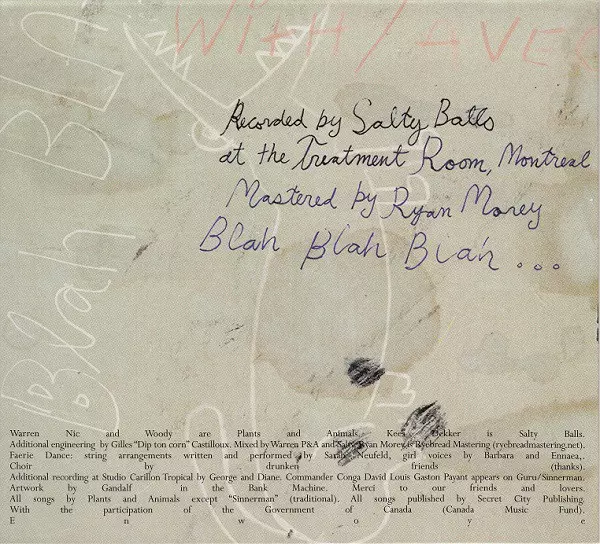 WiTH / AVEC
BLA
Blah
Recorded by Salty Balls
at the Treatment Room, Montreal
Mastered by Ryan Morey
Blah Blah Blah ...
Warren Nic and Woody are Plants and Animals. Kees Dekker is Salty Balls.
Additional engineering by Gilles "Dip ton corn" Castilloux. Mixed by Warren P&A and Salty. Ryan Morey is Ryebread Mastering (ryebreadmastering.net).
Faerie Dance: string arrangements written and performed by Sarah Neufeld, girl voices by Barbara and Ennaea,.
Choir by drunken friends (thanks).
Additional recording at Studio Carillon Tropical by George and Diane. Commander Conga David Louis Gaston Payant appears on Guru/Sinnerman.
Artwork by Gandalf in the Bank Machine. Merci to our friends and lovers.
All songs by Plants and Animals except "Sinnerman" (traditional). All songs published by Secret City Publishing.
With the participation of the Government of Canada (Canada Music Fund).
E n w o y e